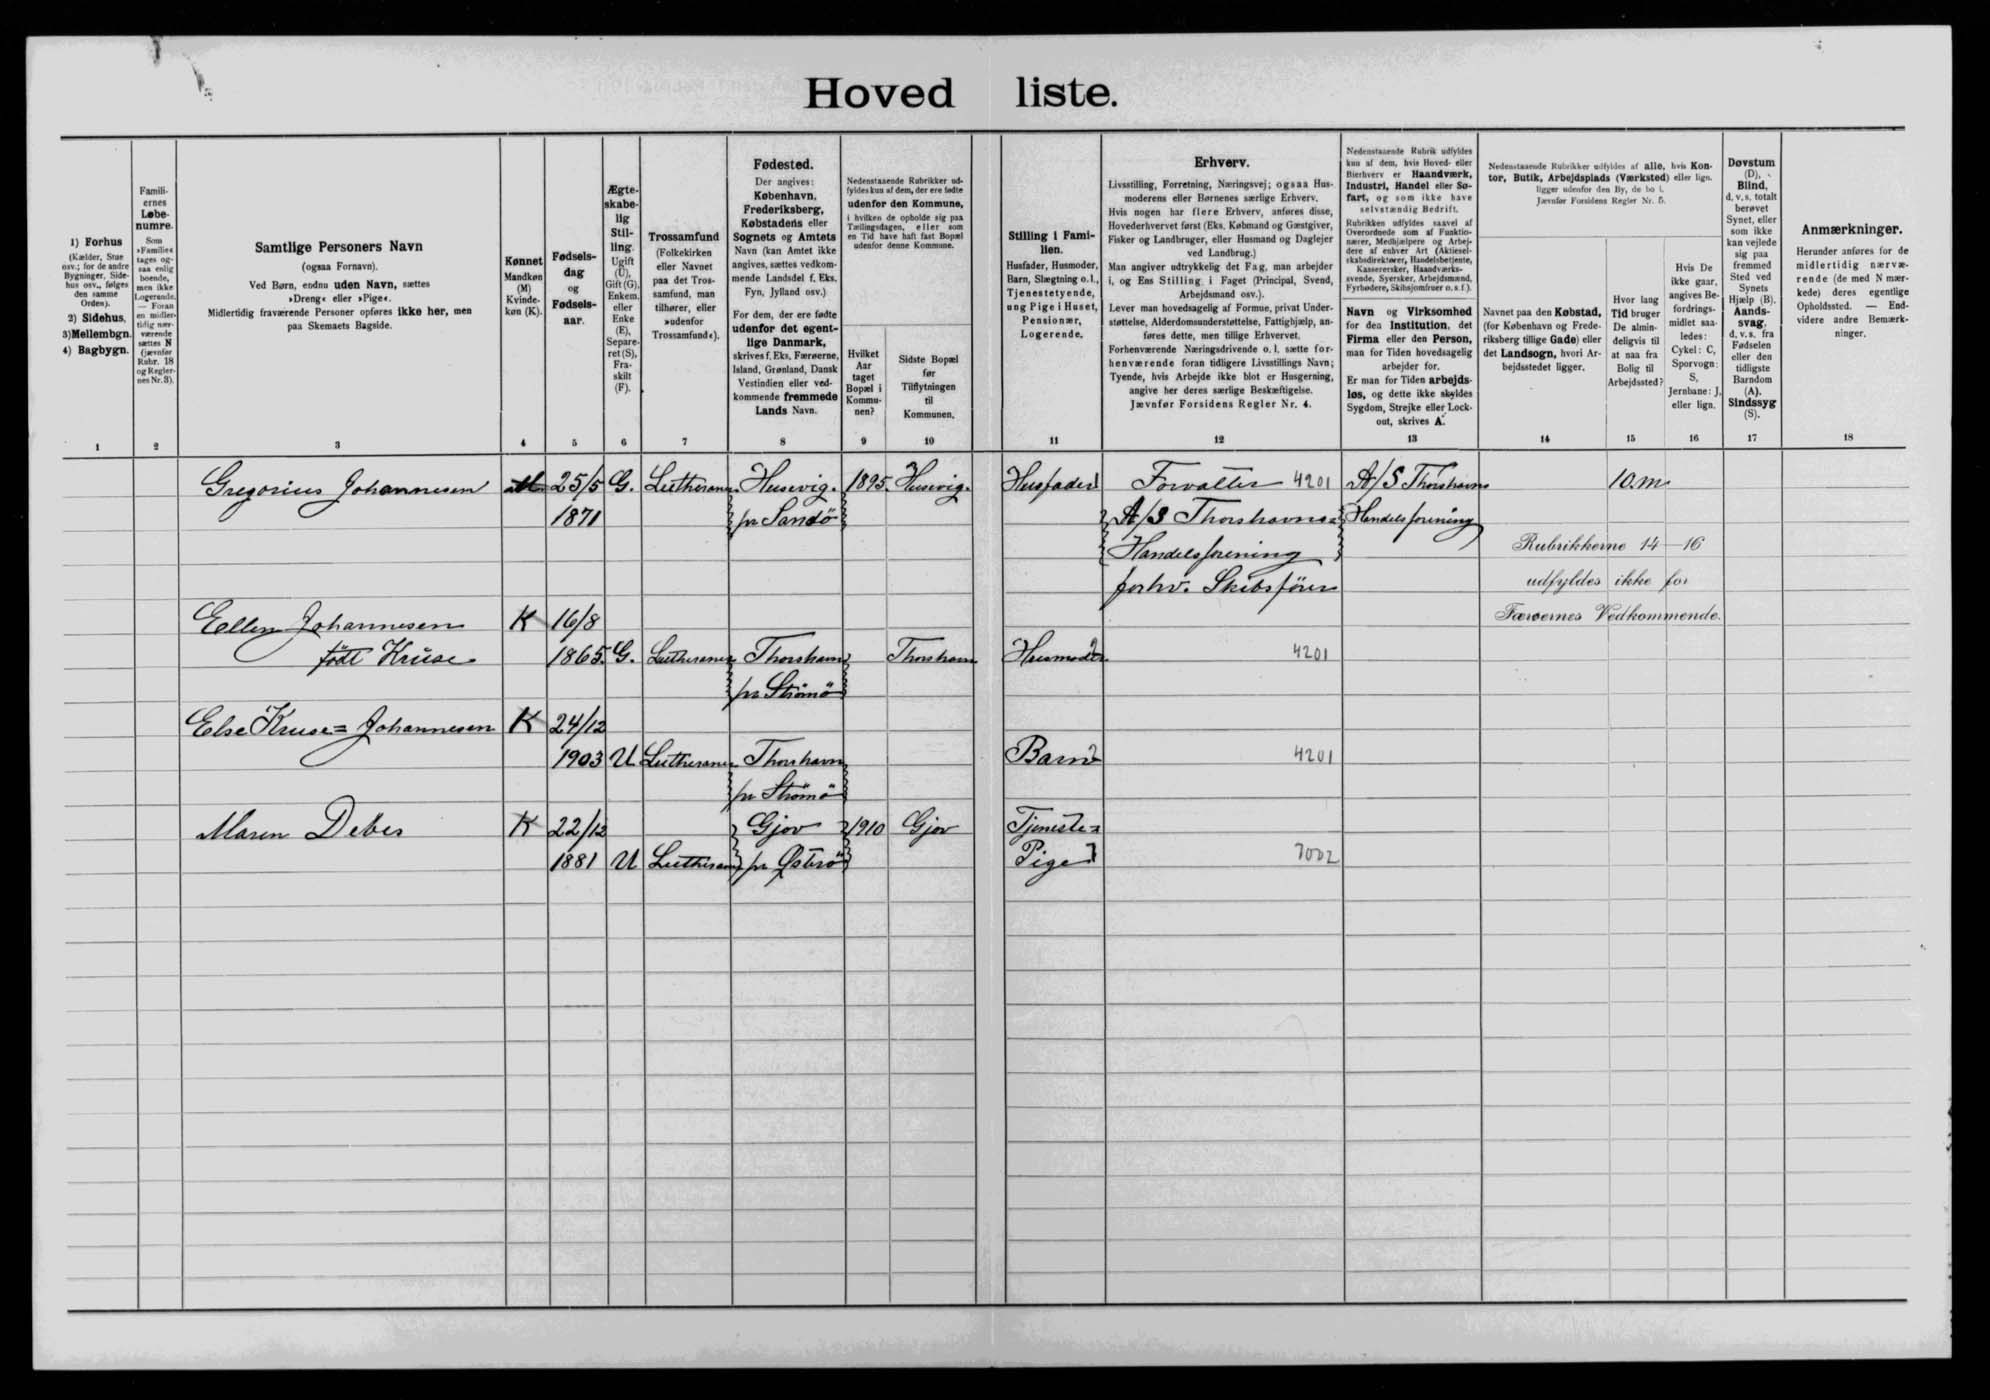 Hoved liste.
1) Forhus
(Kælder, Stue
osv.; for de andre
Bygninger, Side-
hus osv., følges
den samme
Orden).
2) Sidehus,
3) Mellembgn.
4) Bagbygn.
1
Famili-
ernes
Løbe-
numre.
Som
»Familie«
tages og-
saa enlig
boende,
men ikke
Logerende.
— Foran
en midler-
tidig nær-
værende
sættes N
(jævnfør
Rubr. 18
og Regler-
nes Nr. 3).
2
Samtlige Personers Navn
(ogsaa Fornavn).
Ved Børn, endnu uden Navn, sættes
»Dreng« eller »Pige«.
Midlertidig fraværende Personer opføres ikke her, men
paa Skemaets Bagside.
3
Kønnet
Mandkøn
(M)
Kvinde-
køn (K).
4
Fødsels-
dag
og
Fødsels-
aar.
5
Ægte-
skabe-
lig
Stil-
ling.
Ugift
(U),
Gift (G),
Enkem.
eller
Enke
(E),
Separe-
ret (S),
Fra-
skilt
(F).
6
Trossamfund
(Folkekirken
eller Navnet
paa det Tros-
samfund, man
tilhører, eller
»udenfor
Trossamfund«).
7
Fødested.
Der angives:
København,
Frederiksberg,
Købstadens eller
Sognets og Amtets
Navn (kan Amtet ikke
angives, sættes vedkom-
mende Landsdel f. Eks.
Fyn, Jylland osv.)
For dem, der ere fødte
udenfor det egent-
lige Danmark,
skrives f. Eks. Færøerne,
Island, Grønland, Dansk
Vestindien eller ved-
kommende fremmede
Lands Navn.
8
Nedenstaaende Rubrikker ud-
fyldes kun af dem, der ere fødte
udenfor den Kommune,
i hvilken de opholde sig paa
Tællingsdagen, eller som
en Tid have haft fast Bopæl
udenfor denne Kommune.
Hvilket
Aar
taget
Bopæl i
Kommu-
nen?
9
Sidste Bopæl
før
Tilflytningen
til
Kommunen.
10
Stilling i Fami-
lien.
Husfader, Husmoder,
Barn, Slægtning o. l.,
Tjenestetyende,
ung Pige i Huset,
Pensionær,
Logerende.
11
Erhverv.
Livsstilling, Forretning, Næringsvej; ogsaa Hus-
moderens eller Børnenes særlige Erhverv.
Hvis nogen har flere Erhverv, anføres disse,
Hovederhvervet først (Eks. Købmand og Gæstgiver,
Fisker og Landbruger, eller Husmand og Daglejer
ved Landbrug.)
Man angiver udtrykkelig det Fag, man arbejder
i, og Ens Stilling i Faget (Principal, Svend,
Arbejdsmand osv.).
Lever man hovedsagelig af Formue, privat Under-
støttelse, Alderdomsunderstøttelse, Fattighjælp, an-
føres dette, men tillige Erhvervet.
Forhenværende Næringsdrivende o. l. sætte for-
henværende foran tidligere Livsstillings Navn;
Tyende, hvis Arbejde ikke blot er Husgerning,
angive her deres særlige Beskæftigelse.
Jævnfør Forsidens Regler Nr. 4.
12
Nedenstaaende Rubrik udfyldes
kun af dem, hvis Hoved- eller
Bierhverv er Haandværk,
Industri, Handel eller Sø-
fart, og som ikke have
selvstændig Bedrift.
Rubrikken udfyldes saavel af
Overordnede som af Funktio-
nærer, Medhjælpere og Arbej-
dere af enhver Art (Aktiesel-
skabsdirektører, Handelsbetjente,
Kasserersker, Haandværks-
svende, Syersker, Arbejdsmænd,
Fyrbødere, Skibsjomfruer o. s. f.).
Navn og Virksomhed
for den Institution, det
Firma eller den Person,
man for Tiden hovedsagelig
arbejder for.
Er man for Tiden arbejds-
løs, og dette ikke skyldes
Sygdom, Strejke eller Lock-
out, skrives A.
13
Nedenstaaende Rubrikker udfyldes af alle, hvis Kon-
tor, Butik, Arbejdsplads (Værksted) eller lign.
ligger udenfor den By, de bo i.
Jævnfør Forsidens Regler Nr. 5.
Navnet paa den Købstad,
(for København og Frede-
riksberg tillige Gade) eller
det Landsogn, hvori Ar-
bejdsstedet ligger.
14
Hvor lang
Tid bruger
De almin-
deligvis til
at naa fra
Bolig til
Arbejdssted?
15
Hvis De
ikke gaar,
angives Be-
fordrings-
midlet saa-
ledes:
Cykel: C,
Sporvogn:
S,
Jernbane: J,
eller lign.
16
Døvstum
(D),
Blind,
d. v. s. totalt
berøvet
Synet, eller
som ikke
kan vejlede
sig paa
fremmed
Sted ved
Synets
Hjælp (B).
Aands-
svag,
d. v. s. fra
Fødselen
eller den
tidligste
Barndom
(A).
Sindssyg
(S).
17
Anmærkninger.
Herunder anføres for de
midlertidig nærvæ-
rende (de med N mær-
kede) deres egentlige
Opholdssted. — End-
videre andre Bemærk-
ninger.
18
Gregorius Johannesen M 25/5 G. Lutheraner Husevig. 1895. Husevig. Husfader Forvalter 4201 A/S Thorshavns 10. m
1871 paa Sandö A/S Thorshavns= Handelsforening
Handelsforening Rubrikkerne 14—16
forhv. Skibsförer udfyldes ikke for
Ellen Johannesen K 16/8 Færøernes Vedkommende.
født Kruse 1865. G. Lutheraner Thorshavn Thorshavn Husmoder 4201
paa Strömö
Else Kruse= Johannesen K 24/12
1903 U Lutheraner Thorshavn Barn 4201
paa Strömö
Maren Debes K 22/12 Gjov 1910 Gjov Tjeneste=
1881 U Lutheraner paa Østerö Pige 7002